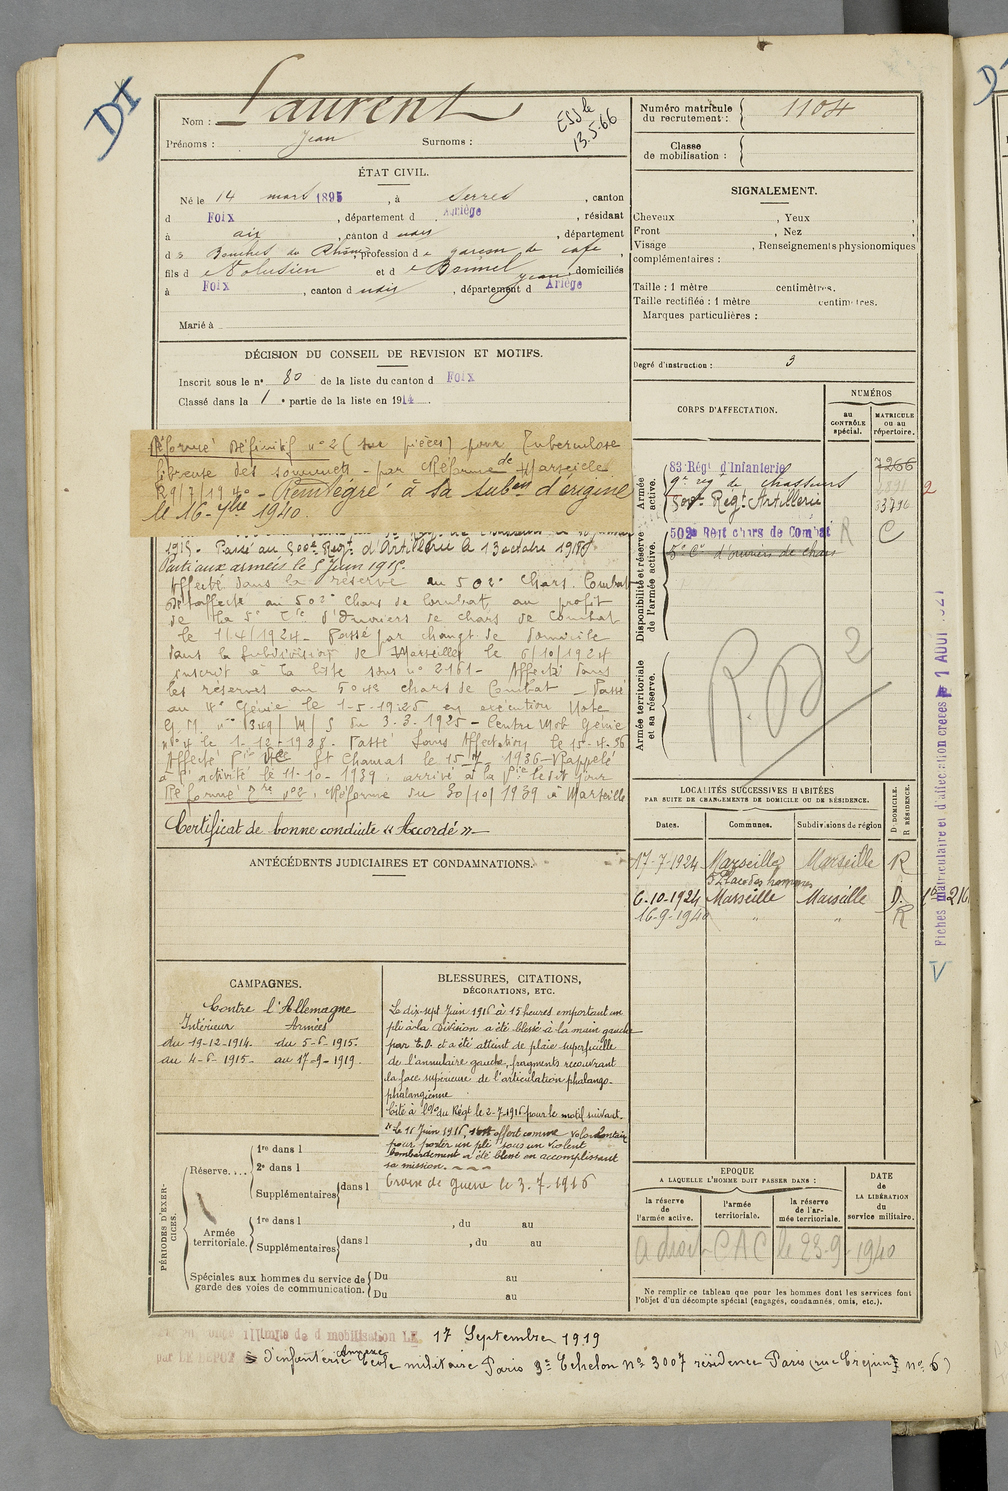 DI
Nom : Laurent
Prénoms : Jean Surnoms :
13.5.66
ÉTAT CIVIL.
Né le 14 mars 1895, à Serres, canton
d Foix, département d Ariège, résidant
à aix, canton d udis, département
d es Bouches du Rhône, profession d e garçon de café,
fils d e Volusien et d e Bonnel Jeanne domiciliés
à Foix, canton d udis, département d Ariège
Marié à
DÉCISION DU CONSEIL DE REVISION ET MOTIFS.
Inscrit sous le n° 80 de la liste du canton d Foix
Classé dans la 1e partie de la liste en 1914.
Réformé Définitif n° 2 (sur pièces) pour Tuberculose
fibreuse des sommets - par C Réforme de Marseille
R 9/7/1940 - Réintégré à sa subon d'origine
le 16-7bre 1940.
1915. Passé au 500e Régt d'Artillerie le 13 octobre 1918
Parti aux armées le 5 Juin 1915.
Affecté dans la réserve au 502e Chars Combat
Désaffecté au 502e Chars de Combat, au profit
de la 5e Cie d'Ouvriers de chars de Combat
le 11/4/1924 - Passé par changt de domicile
dans la subdivision de Marseille le 6/10/1924
inscrit à la liste sous n° 2161 - Affecté dans
les réserves au 504e chars de Combat - Passé
au 4e Génie le 1-5-1925 en exécution Note
E.M. n° 1349/M/S du 3.3.1925 - Centre Mob Génie
n° 4 le 1-12-1928. Passé Sans Affectation le 15-4-36
Affecté St Chamas le 15-7-1936 - Rappelé
à l'activité le 11-10-1939. arrivé à la Pie le dit jour
Réformé n° 2. Réforme du 30/10/1939 à Marseille
Certificat de bonne conduite « Accordé »
ANTÉCÉDENTS JUDICIAIRES ET CONDAMNATIONS.
CAMPAGNES.
Contre l'Allemagne
Intérieur Armées
du 19-12-1914. du 5-6-1915.
au 4-6-1915. au 17-9-1919.
BLESSURES, CITATIONS,
DÉCORATIONS, ETC.
Le dix-sept Juin 1916 à 15 heures emportant un
pli à la Division a été blessé à la main gauche
par E.O. et a été atteint de plaie superficielle
de l'annulaire gauche, fragments recouvrant
la face supérieure de l'articulation phalango-
phalangienne
Cité à l'O/ du Régt le 2-7-1916 pour le motif suivant.
"Le 16 Juin 1916, s'est offert comme volontaire
pour porter un pli sous un violent
bombardement a été blessé en accomplissant
sa mission.
Croix de guerre le 3-7-1916
PÉRIODES D'EXERCICES.
Réserve....
1re dans l
2e dans l
Supplémentaires dans l
Armée territoriale.
1re dans l , du au
Supplémentaires dans l , du au
Spéciales aux hommes du service de garde des voies de communication.
Du au
Du au
Numéro matricule du recrutement : 1104
Classe de mobilisation :
SIGNALEMENT.
Cheveux , Yeux ,
Front , Nez ,
Visage , Renseignements physionomiques
complémentaires :
Taille : 1 mètre centimètres.
Taille rectifiée : 1 mètre centimètres.
Marques particulières :
Degré d'instruction : 3
CORPS D'AFFECTATION.
NUMÉROS
au CONTRÔLE spécial.
MATRICULE ou au répertoire.
Armée active.
83 Régt d'Infanterie 7266
9e régt de chasseurs 2
500e Régt Artillerie
Disponibilité et réserve de l'armée active.
502e Régt chars de Combat R C
5e Cie d'ouvriers de chars
Armée territoriale et sa réserve.
R.D 2
LOCALITÉS SUCCESSIVES HABITÉES
PAR SUITE DE CHANGEMENTS DE DOMICILE OU DE RÉSIDENCE.
Dates. Communes. Subdivisions de région D. DOMICILE. R. RÉSIDENCE.
17-7-1924 Marseille Marseille R
5 Place des hommes
6-10-1924 Marseille Marseille D.
16-9-1940 " " R
EPOQUE
A LAQUELLE L'HOMME DOIT PASSER DANS :
la réserve de l'armée active.
l'armée territoriale.
la réserve de l'armée territoriale.
DATE de LA LIBÉRATION du service militaire.
a droit CAC le 23-9-1940
Ne remplir ce tableau que pour les hommes dont les services font
l'objet d'un décompte spécial (engagés, condamnés, omis, etc.).
Fiches matriculaire et d'affectation créées le 1 AOUT
V
illimité de démobilisation LE 17 Septembre 1919
par LE DÉPOT d'infanterie Annexe École militaire Paris 3e Echelon n° 3007 résidence Paris (rue Crépin n° 6)